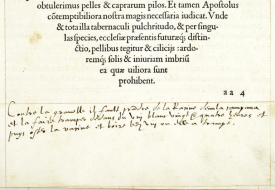 obtulerimus pelles & caprarum pilos. Et tamen Apostolus
cõtemptibiliora nostra magis necessaria iudicat. Vnde
& tota illa tabernaculi pulchritudo, & per singu
las species, ecclesiæ præsentis futuræq; distin
ctio, pellibus tegitur & cilicijs: ardo
remq; solis & iniuriam imbriũ
ea quæ uiliora sunt
prohibent.
aa 4
Contre la gravelle il fault prendre de la Racine
et la faire tremper dedans du vin blanc vingt & quatre heures et
puys oster la racine et boire le vin